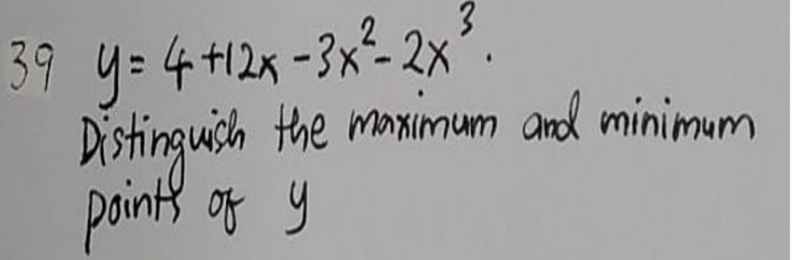 39 y = 4 +12x - 3x² - 2x³.
Distinguish the maximum and minimum
points of y